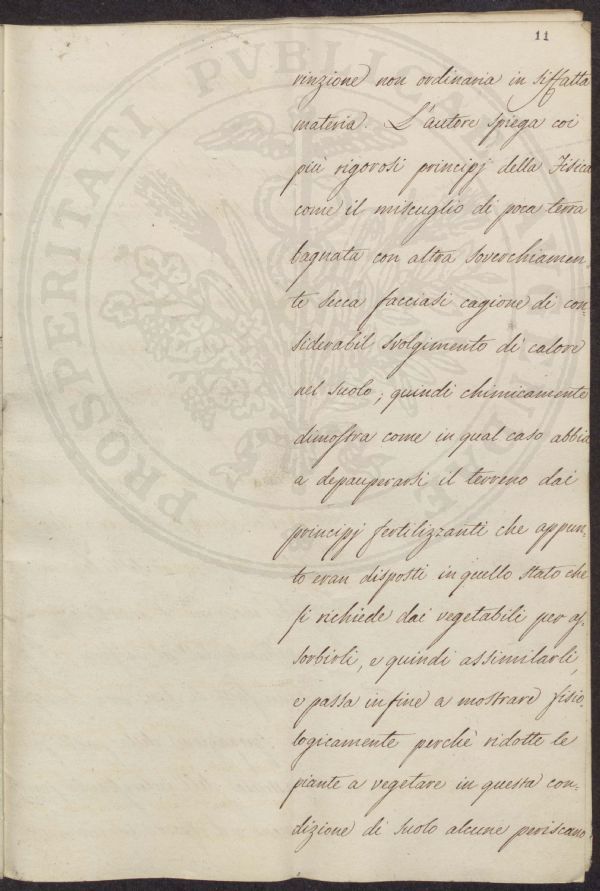 11
PROSPERITATI PUBLICAE
rinzione non ordinaria in siffatta
materia. L'autore spiega coi
più rigorosi principj della Fisica
come il miscuglio di poca terra
bagnata con altra soverchiamen-
te secca facciasi cagione di con-
siderabil svolgimento di calore
nel suolo; quindi chimicamente
dimostra come in qual caso abbia
a depauperarsi il terreno dai
principj fertilizzanti che appun-
to eran disposti in quello stato che
si richiede dai vegetabili per as-
sorbirli, e quindi assimilarli,
e passa infine a mostrare fisio-
logicamente perchè ridotte le
piante a vegetare in questa con-
dizione di suolo alcune periscano,